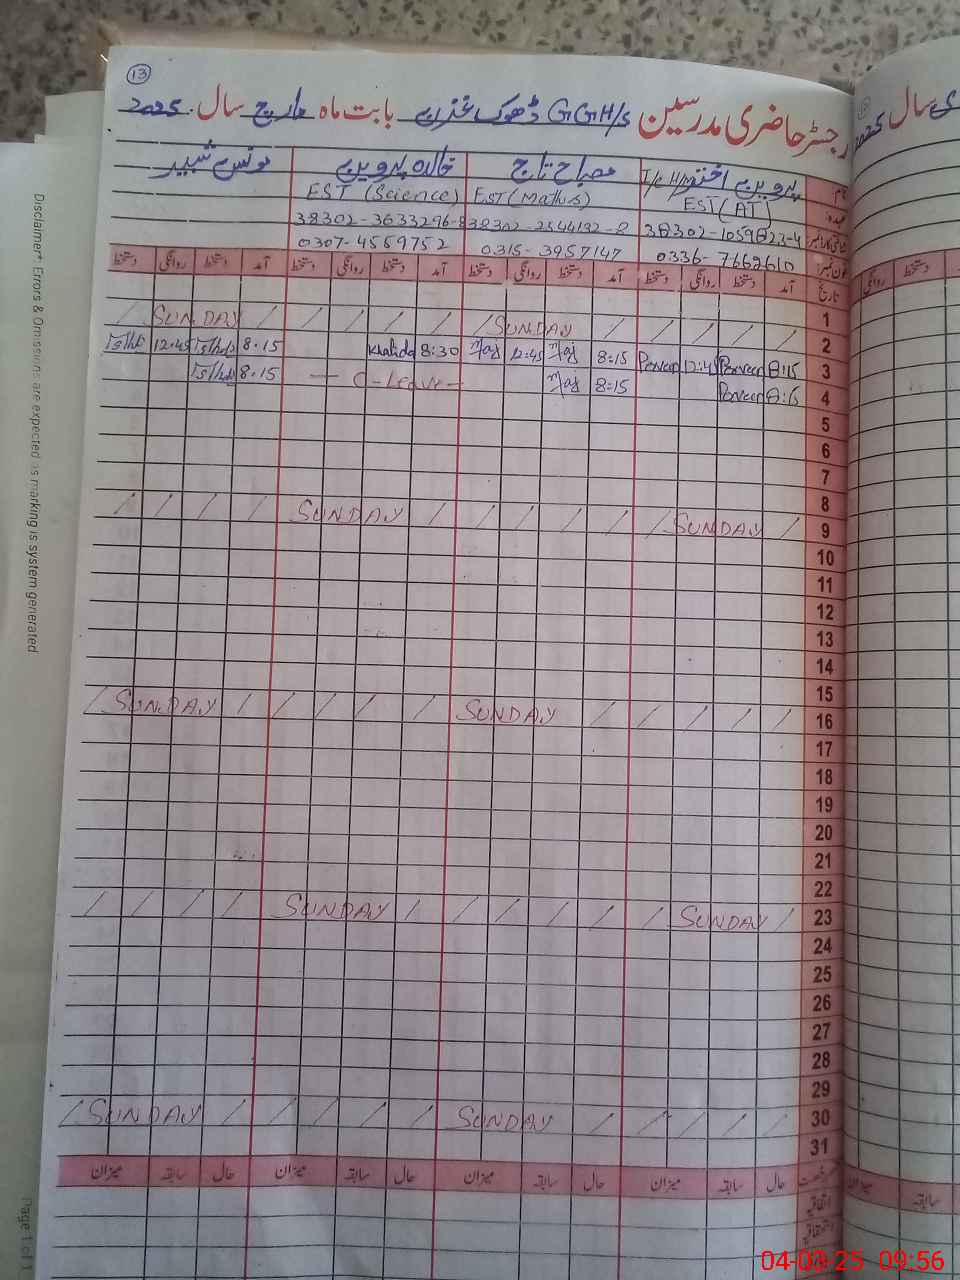 13
رجسٹر حاضری مدرسین GGH/S ڈھوک غذن بابت ماہ مارچ سال 2025
نام پروین اختر I/c H/M مصباح تاج خالدہ پروین یونس شبیر
عہدہ EST (AT) EST (Maths) EST (Science)
38302-1059823-4 38302-2544132-8 38302-3633296-8
فون نمبر 0336-7662610 0315-3957147 0307-4559752
تاریخ آمد دستخط روانگی دستخط آمد دستخط روانگی دستخط آمد دستخط روانگی دستخط آمد دستخط روانگی دستخط
1
2 SUNDAY SUNDAY
3 8:15 Parveen 12:45 Parveen 8:15 12:45 8:30 Khalida 8.15 12:45
4 8:15 Parveen 8:15 C-Leave 8.15
5
6
7
8
9 SUNDAY SUNDAY
10
11
12
13
14
15
16 SUNDAY SUNDAY
17
18
19
20
21
22
23 SUNDAY SUNDAY
24
25
26
27
28
29
30 SUNDAY SUNDAY
31
رخصت حال سابقہ میزان حال سابقہ میزان حال سابقہ میزان حال سابقہ میزان
اتفاقیہ
استحقاقیہ
سال 2025
دستخط روانگی
سابقہ میزان
Disclaimer*: Errors & Omissions are expected as marking is system generated.
Page 1 of 1
04-03-25 09:56